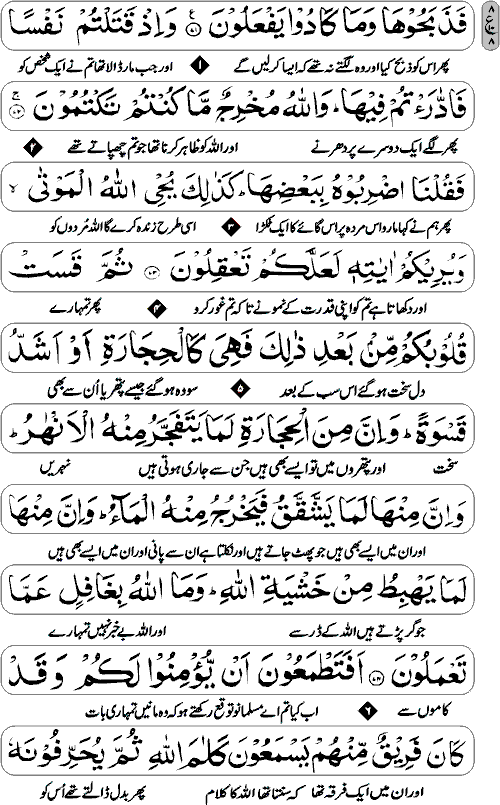 فَذَبَحُوْهَا وَمَا كَادُوْا يَفْعَلُوْنَ ﴿۷۱﴾ وَاِذْ قَتَلْتُمْ نَفْسًا
پھر اس کو ذبح کیا اور وہ لگتے نہ تھے کہ ایسا کر لیں گے ۱ اور جب مار ڈالا تھا تم نے ایک شخص کو
فَادّٰرَءْتُمْ فِيْهَا ؕ وَاللّٰهُ مُخْرِجٌ مَّا كُنْتُمْ تَكْتُمُوْنَ ﴿۷۲﴾
پھر لگے ایک دوسرے پر دھرنے اور اللہ کو ظاہر کرنا تھا جو تم چھپاتے تھے ۲
فَقُلْنَا اضْرِبُوْهُ بِبَعْضِهَا ؕ كَذٰلِكَ يُحْيِ اللّٰهُ الْمَوْتٰى ۙ
پھر ہم نے کہا مارو اس مردہ پر اس گائے کا ایک ٹکڑا ۳ اسی طرح زندہ کرے گا اللہ مُردوں کو
وَيُرِيْكُمْ اٰيٰتِهٖ لَعَلَّكُمْ تَعْقِلُوْنَ ﴿۷۳﴾ ثُمَّ قَسَتْ
اور دکھاتا ہے تم کو اپنی قدرت کے نمونے تاکہ تم غور کرو ۴ پھر تمہارے
قُلُوْبُكُمْ مِّنْۢ بَعْدِ ذٰلِكَ فَهِيَ كَالْحِجَارَةِ اَوْ اَشَدُّ
دل سخت ہو گئے اس سب کے بعد ۵ سو وہ ہو گئے جیسے پتھر یا اُن سے بھی
قَسْوَةً ؕ وَاِنَّ مِنَ الْحِجَارَةِ لَمَا يَتَفَجَّرُ مِنْهُ الْاَنْهٰرُ ؕ
سخت اور پتھروں میں تو ایسے بھی ہیں جن سے جاری ہوتی ہیں نہریں
وَاِنَّ مِنْهَا لَمَا يَشَّقَّقُ فَيَخْرُجُ مِنْهُ الْمَآءُ ؕ وَاِنَّ مِنْهَا
اور ان میں ایسے بھی ہیں جو پھٹ جاتے ہیں اور نکلتا ہے ان سے پانی اور ان میں ایسے بھی ہیں
لَمَا يَهْبِطُ مِنْ خَشْيَةِ اللّٰهِ ؕ وَمَا اللّٰهُ بِغَافِلٍ عَمَّا
جو گر پڑتے ہیں اللہ کے ڈر سے اور اللہ بے خبر نہیں تمہارے
تَعْمَلُوْنَ ﴿۷۴﴾ اَفَتَطْمَعُوْنَ اَنْ يُّؤْمِنُوْا لَكُمْ وَقَدْ
کاموں سے ۶ اب کیا تم اے مسلمانو توقع رکھتے ہو کہ وہ مانیں تمہاری بات
كَانَ فَرِيْقٌ مِّنْهُمْ يَسْمَعُوْنَ كَلٰمَ اللّٰهِ ثُمَّ يُحَرِّفُوْنَهٗ
اور ان میں ایک فرقہ تھا کہ سنتا تھا اللہ کا کلام پھر بدل ڈالتے تھے اُس کو